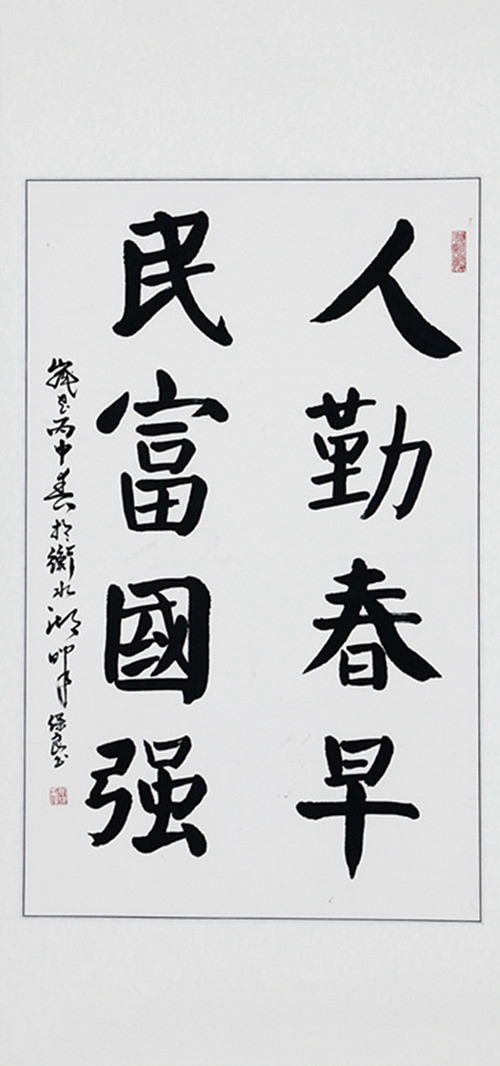 人勤春早
民富國强
歲在丙申春於衡水湖畔保良书